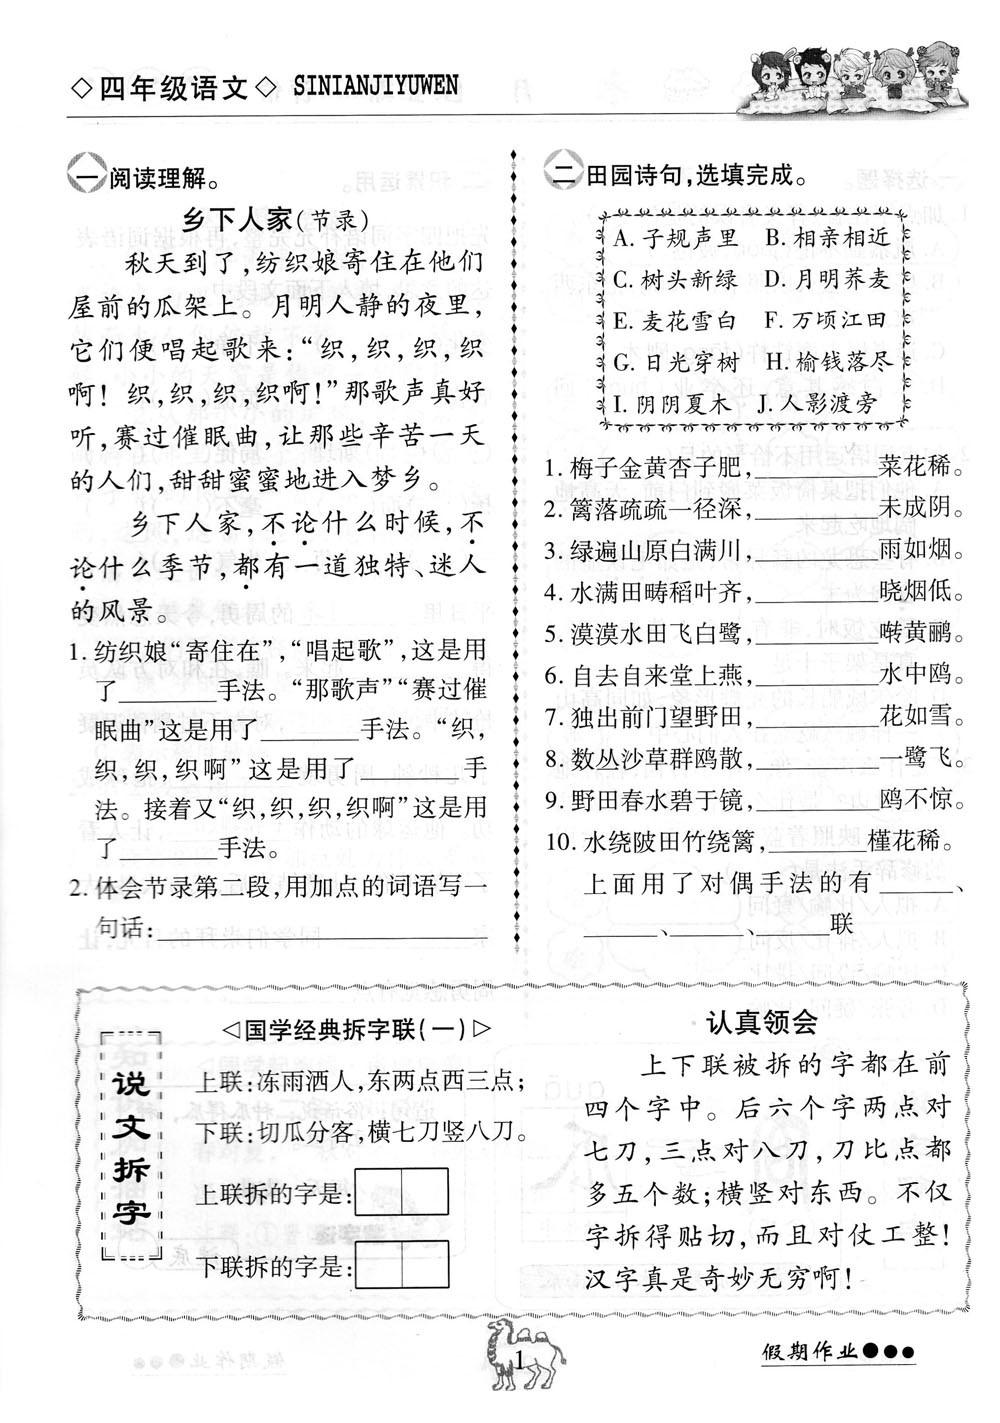 ◇四年级语文◇ SINIANJIYUWEN
一 阅读理解。
乡下人家(节录)
秋天到了,纺织娘寄住在他们
屋前的瓜架上。月明人静的夜里,
它们便唱起歌来:“织,织,织,织
啊! 织,织,织,织啊!”那歌声真好
听,赛过催眠曲,让那些辛苦一天
的人们,甜甜蜜蜜地进入梦乡。
乡下人家,不论什么时候,不
论什么季节,都有一道独特、迷人
的风景。
1. 纺织娘“寄住在”,“唱起歌”,这是用
了________手法。“那歌声”“赛过催
眠曲”这是用了________手法。“织,
织,织,织啊”这是用了________手
法。接着又“织,织,织,织啊”这是用
了________手法。
2. 体会节录第二段,用加点的词语写一
句话:________
二 田园诗句,选填完成。
A. 子规声里 B. 相亲相近
C. 树头新绿 D. 月明荞麦
E. 麦花雪白 F. 万顷江田
G. 日光穿树 H. 榆钱落尽
I. 阴阴夏木 J. 人影渡旁
1. 梅子金黄杏子肥,________菜花稀。
2. 篱落疏疏一径深,________未成阴。
3. 绿遍山原白满川,________雨如烟。
4. 水满田畴稻叶齐,________晓烟低。
5. 漠漠水田飞白鹭,________啭黄鹂。
6. 自去自来堂上燕,________水中鸥。
7. 独出前门望野田,________花如雪。
8. 数丛沙草群鸥散,________一鹭飞。
9. 野田春水碧于镜,________鸥不惊。
10. 水绕陂田竹绕篱,________槿花稀。
上面用了对偶手法的有______、
______、______、______联
说文拆字
◁国学经典拆字联(一)▷
上联:冻雨洒人,东两点西三点;
下联:切瓜分客,横七刀竖八刀。
上联拆的字是:
下联拆的字是:
认真领会
上下联被拆的字都在前
四个字中。后六个字两点对
七刀,三点对八刀,刀比点都
多五个数;横竖对东西。不仅
字拆得贴切,而且对仗工整!
汉字真是奇妙无穷啊!
1
假期作业●●●